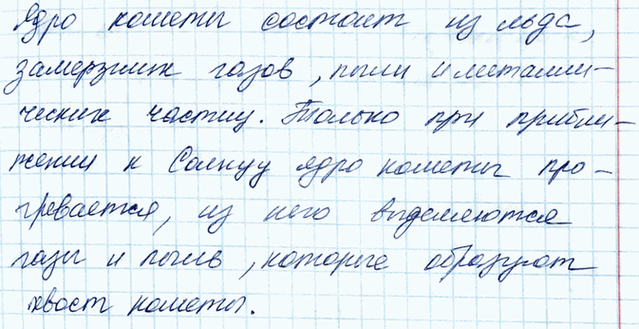 Ядро кометы состоит из льда,
замерзших газов, пыли и металли-
ческих частиц. Только при прибли-
жении к Солнцу ядро кометы про-
гревается, из него выделяются
газы и пыль, которые образуют
хвост кометы.